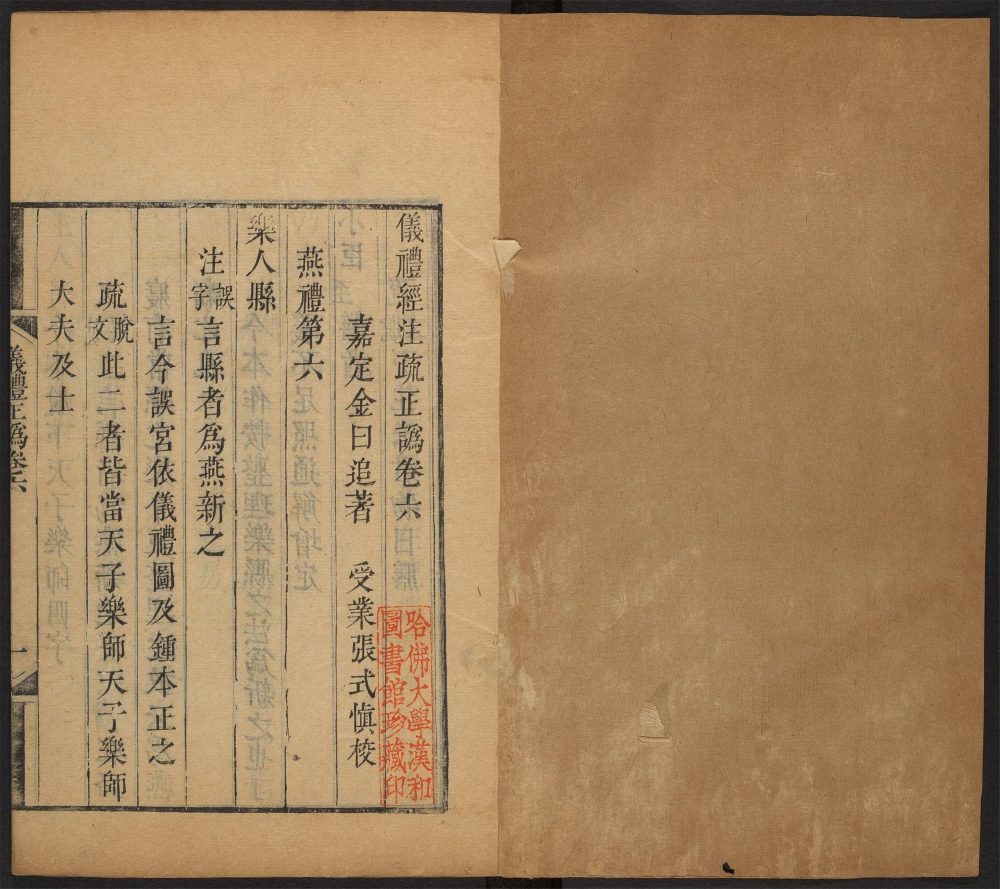 儀禮經注疏正譌卷六
嘉定金曰追著 受業張式慎校
燕禮第六
樂人縣
注誤字言縣者爲燕新之
言今誤宮依儀禮圖及鍾本正之
疏脫文此二者皆當天子樂師天子樂師
大夫及士
儀禮正譌卷六
一
哈佛大學漢和
圖書館珍藏印